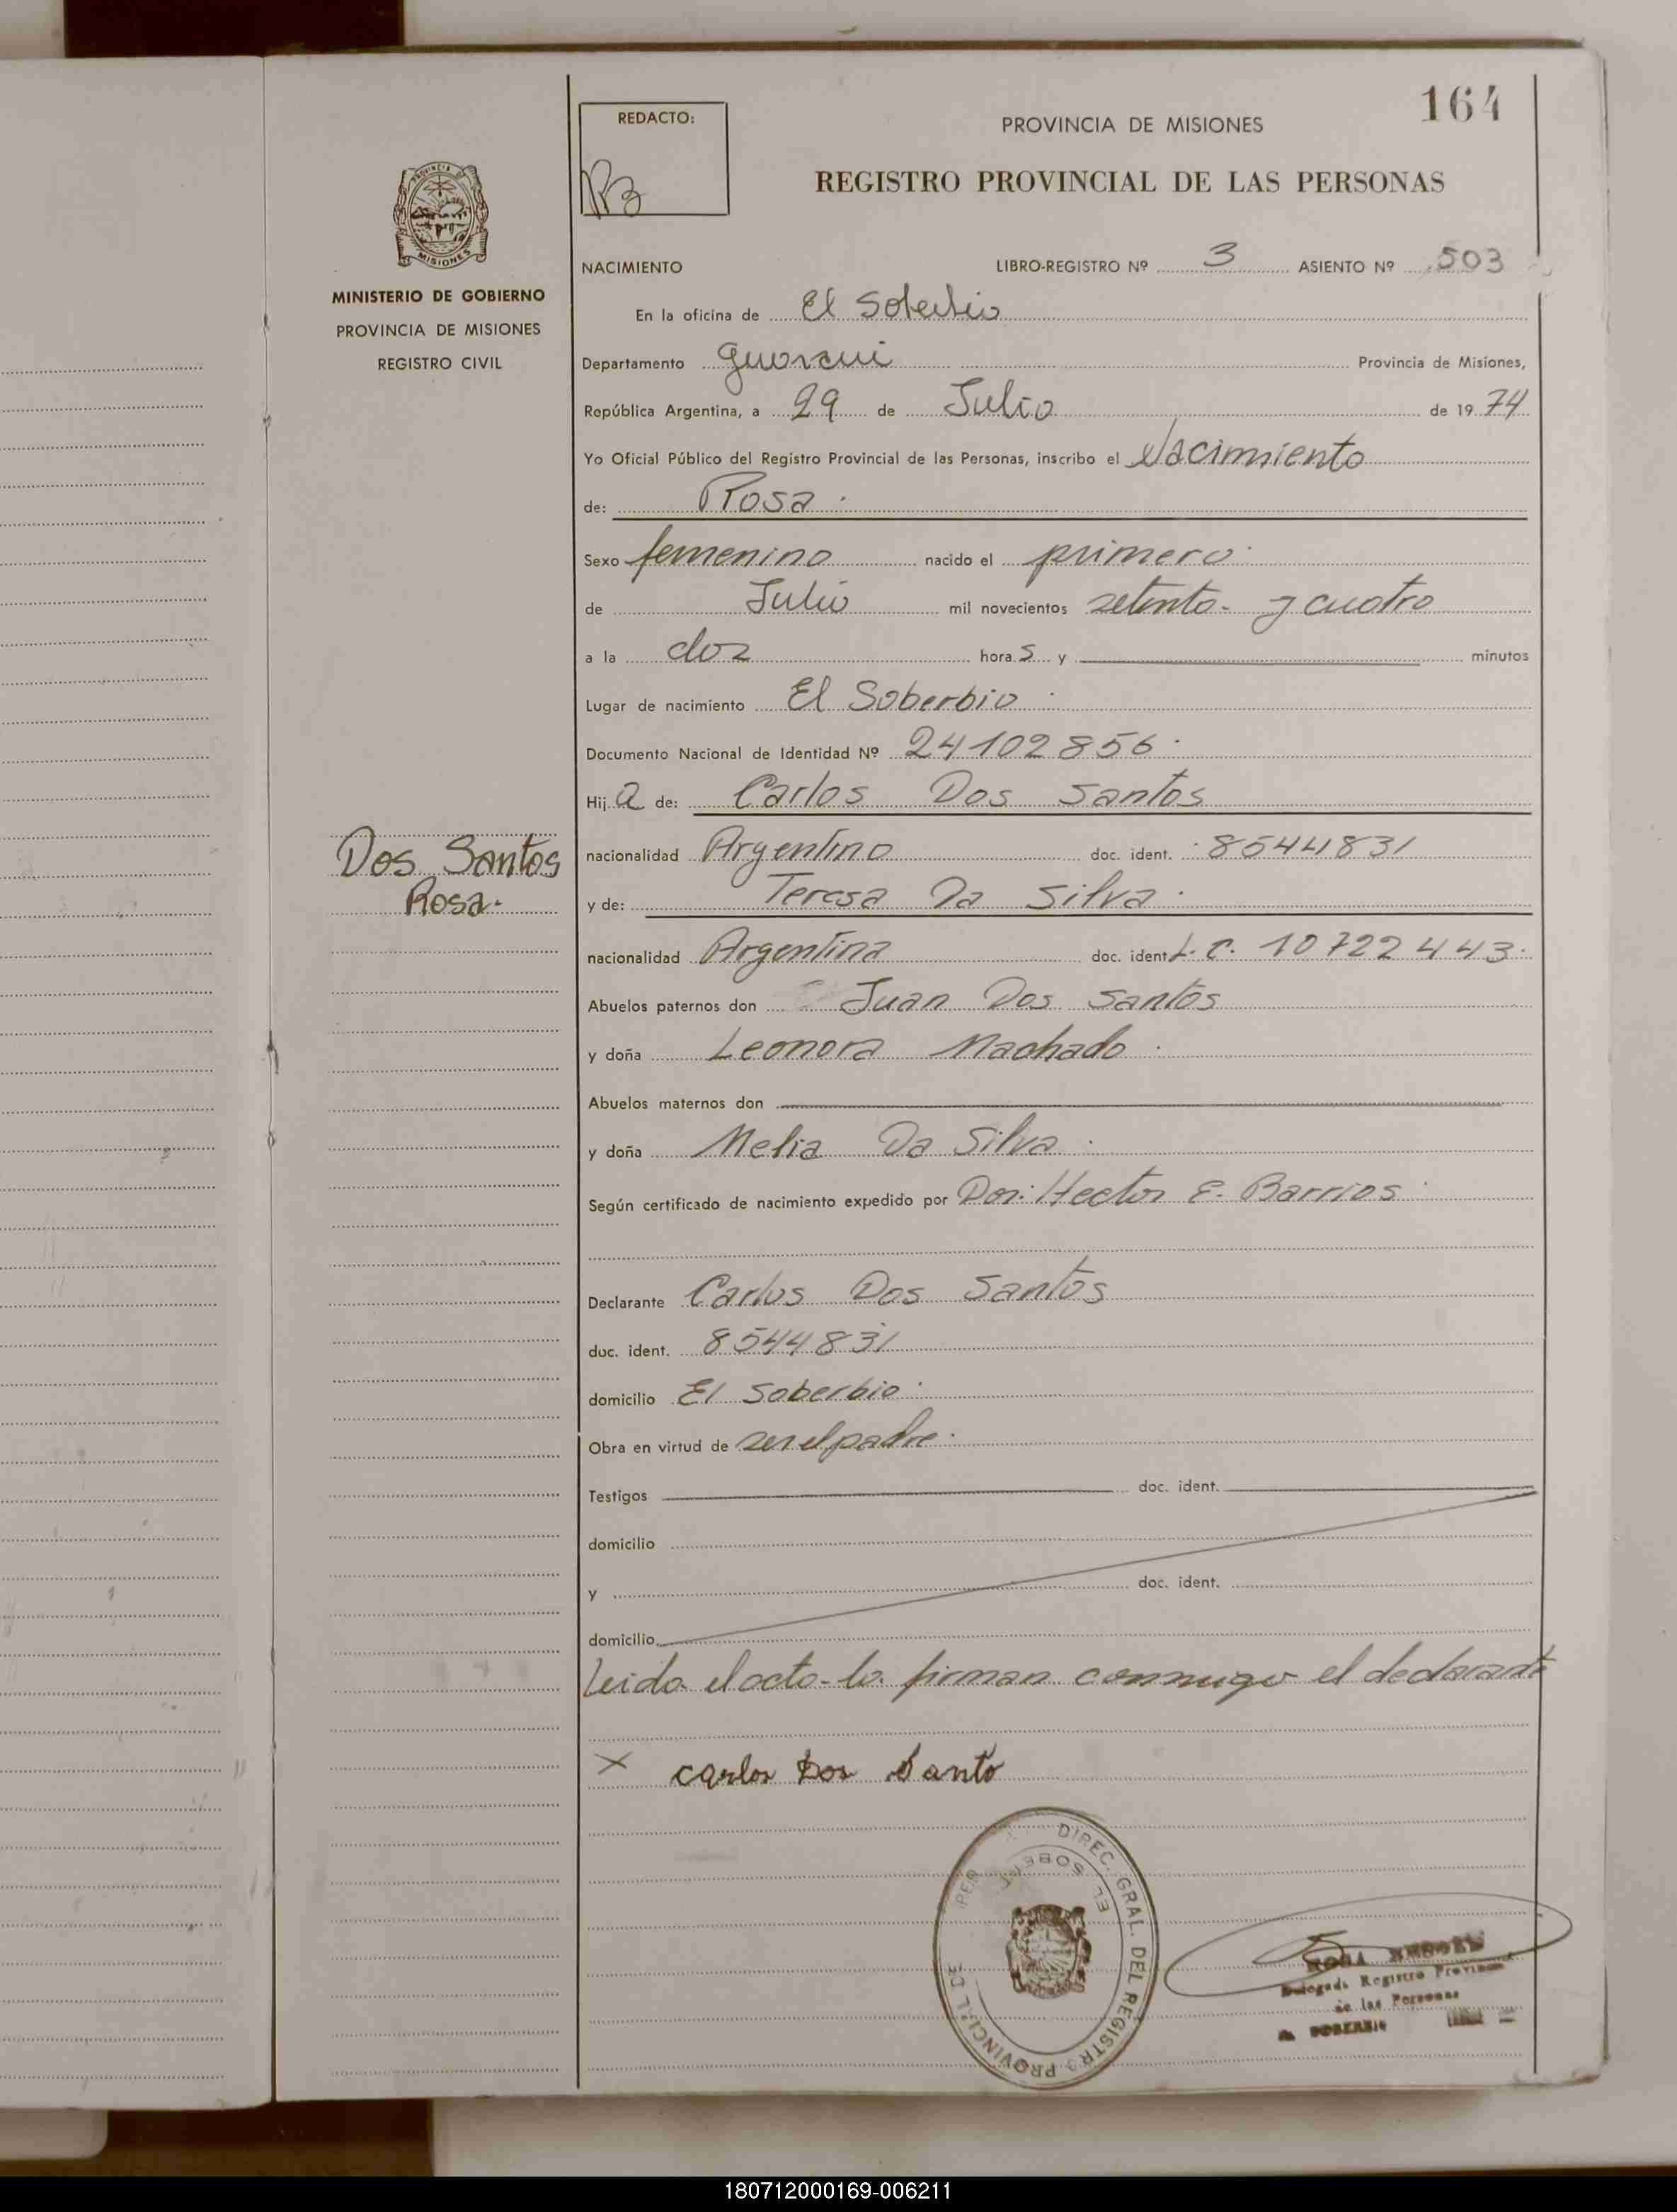 164
REDACTO:
PROVINCIA DE MISIONES
REGISTRO PROVINCIAL DE LAS PERSONAS
MISIONES
MINISTERIO DE GOBIERNO
PROVINCIA DE MISIONES
REGISTRO CIVIL
NACIMIENTO LIBRO-REGISTRO Nº 3 ASIENTO Nº 503
En la oficina de El Soberbio
Departamento Guarani Provincia de Misiones,
República Argentina, a 29 de Julio de 19 74
Yo Oficial Público del Registro Provincial de las Personas, inscribo el Nacimiento
de: Rosa.
Sexo femenino nacido el primero.
de Julio mil novecientos setenta y cuatro
a la dos hora s y minutos
Lugar de nacimiento El Soberbio.
Documento Nacional de Identidad Nº 24102856.
Hij a de: Carlos Dos Santos
Dos Santos
Rosa.
nacionalidad Argentino doc. ident. 8544831
y de: Teresa Da Silva.
nacionalidad Argentina doc. ident. L. C. 10722443.
Abuelos paternos don Juan Dos Santos
y doña Leonora Machado.
Abuelos maternos don
y doña Melia Da Silva.
Según certificado de nacimiento expedido por Dor: Hector E. Barrios.
Declarante Carlos Dos Santos
doc. ident. 8544831
domicilio El Soberbio.
Obra en virtud de ser el padre.
Testigos doc. ident.
domicilio
y doc. ident.
domicilio
leida el acta la firman conmigo el declarante
X Carlos Dos Santo
DIREC. GRAL. DEL REGISTRO PROVINCIAL DE
EL SOBER
ROSA
Delegada Registro Provincial
de las Personas
SOBERBIO
180712000169-006211